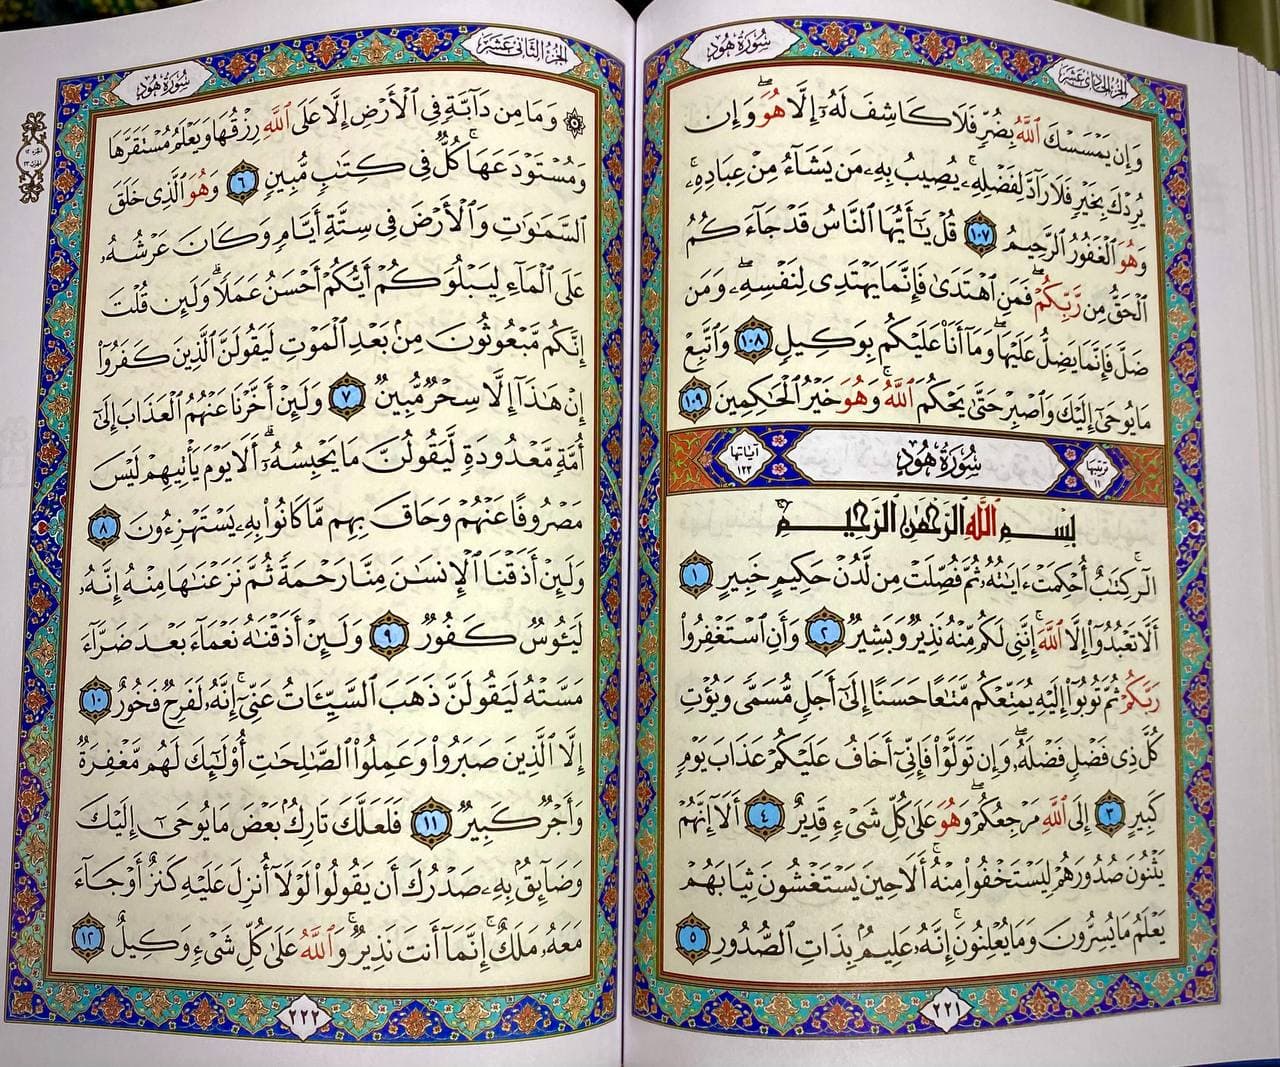 الجزء الحادي عشر
سورة هود
وَإِن يَمْسَسْكَ ٱللَّهُ بِضُرٍّ فَلَا كَاشِفَ لَهُۥٓ إِلَّا هُوَ ۖ وَإِن
يُرِدْكَ بِخَيْرٍ فَلَا رَآدَّ لِفَضْلِهِۦ ۚ يُصِيبُ بِهِۦ مَن يَشَآءُ مِنْ عِبَادِهِۦ ۚ
وَهُوَ ٱلْغَفُورُ ٱلرَّحِيمُ ١٠٧ قُلْ يَـٰٓأَيُّهَا ٱلنَّاسُ قَدْ جَآءَكُمُ
ٱلْحَقُّ مِن رَّبِّكُمْ ۖ فَمَنِ ٱهْتَدَىٰ فَإِنَّمَا يَهْتَدِى لِنَفْسِهِۦ ۖ وَمَن
ضَلَّ فَإِنَّمَا يَضِلُّ عَلَيْهَا ۖ وَمَآ أَنَا۠ عَلَيْكُم بِوَكِيلٍ ١٠٨ وَٱتَّبِعْ
مَا يُوحَىٰٓ إِلَيْكَ وَٱصْبِرْ حَتَّىٰ يَحْكُمَ ٱللَّهُ ۚ وَهُوَ خَيْرُ ٱلْحَـٰكِمِينَ ١٠٩
ترتيبها ١١ سُورَةُ هُودٍ آياتها ١٢٣
بِسْمِ ٱللَّهِ ٱلرَّحْمَـٰنِ ٱلرَّحِيمِ
الٓر ۚ كِتَـٰبٌ أُحْكِمَتْ ءَايَـٰتُهُۥ ثُمَّ فُصِّلَتْ مِن لَّدُنْ حَكِيمٍ خَبِيرٍ ١
أَلَّا تَعْبُدُوٓا۟ إِلَّا ٱللَّهَ ۚ إِنَّنِى لَكُم مِّنْهُ نَذِيرٌ وَبَشِيرٌ ٢ وَأَنِ ٱسْتَغْفِرُوا۟
رَبَّكُمْ ثُمَّ تُوبُوٓا۟ إِلَيْهِ يُمَتِّعْكُم مَّتَـٰعًا حَسَنًا إِلَىٰٓ أَجَلٍ مُّسَمًّى وَيُؤْتِ
كُلَّ ذِى فَضْلٍ فَضْلَهُۥ ۖ وَإِن تَوَلَّوْا۟ فَإِنِّىٓ أَخَافُ عَلَيْكُمْ عَذَابَ يَوْمٍ
كَبِيرٍ ٣ إِلَى ٱللَّهِ مَرْجِعُكُمْ ۖ وَهُوَ عَلَىٰ كُلِّ شَىْءٍ قَدِيرٌ ٤ أَلَآ إِنَّهُمْ
يَثْنُونَ صُدُورَهُمْ لِيَسْتَخْفُوا۟ مِنْهُ ۚ أَلَا حِينَ يَسْتَغْشُونَ ثِيَابَهُمْ
يَعْلَمُ مَا يُسِرُّونَ وَمَا يُعْلِنُونَ ۚ إِنَّهُۥ عَلِيمٌۢ بِذَاتِ ٱلصُّدُورِ ٥
٢٢١
الجزء الثاني عشر
سورة هود
۞ وَمَا مِن دَآبَّةٍ فِى ٱلْأَرْضِ إِلَّا عَلَى ٱللَّهِ رِزْقُهَا وَيَعْلَمُ مُسْتَقَرَّهَا
وَمُسْتَوْدَعَهَا ۚ كُلٌّ فِى كِتَـٰبٍ مُّبِينٍ ٦ وَهُوَ ٱلَّذِى خَلَقَ
ٱلسَّمَـٰوَٰتِ وَٱلْأَرْضَ فِى سِتَّةِ أَيَّامٍ وَكَانَ عَرْشُهُۥ
عَلَى ٱلْمَآءِ لِيَبْلُوَكُمْ أَيُّكُمْ أَحْسَنُ عَمَلًا ۗ وَلَئِن قُلْتَ
إِنَّكُم مَّبْعُوثُونَ مِنۢ بَعْدِ ٱلْمَوْتِ لَيَقُولَنَّ ٱلَّذِينَ كَفَرُوٓا۟
إِنْ هَـٰذَآ إِلَّا سِحْرٌ مُّبِينٌ ٧ وَلَئِنْ أَخَّرْنَا عَنْهُمُ ٱلْعَذَابَ إِلَىٰٓ
أُمَّةٍ مَّعْدُودَةٍ لَّيَقُولُنَّ مَا يَحْبِسُهُۥٓ ۗ أَلَا يَوْمَ يَأْتِيهِمْ لَيْسَ
مَصْرُوفًا عَنْهُمْ وَحَاقَ بِهِم مَّا كَانُوا۟ بِهِۦ يَسْتَهْزِءُونَ ٨
وَلَئِنْ أَذَقْنَا ٱلْإِنسَـٰنَ مِنَّا رَحْمَةً ثُمَّ نَزَعْنَـٰهَا مِنْهُ إِنَّهُۥ
لَيَـُٔوسٌ كَفُورٌ ٩ وَلَئِنْ أَذَقْنَـٰهُ نَعْمَآءَ بَعْدَ ضَرَّآءَ
مَسَّتْهُ لَيَقُولَنَّ ذَهَبَ ٱلسَّيِّـَٔاتُ عَنِّىٓ ۚ إِنَّهُۥ لَفَرِحٌ فَخُورٌ ١٠
إِلَّا ٱلَّذِينَ صَبَرُوا۟ وَعَمِلُوا۟ ٱلصَّـٰلِحَـٰتِ أُو۟لَـٰٓئِكَ لَهُم مَّغْفِرَةٌ
وَأَجْرٌ كَبِيرٌ ١١ فَلَعَلَّكَ تَارِكٌۢ بَعْضَ مَا يُوحَىٰٓ إِلَيْكَ
وَضَآئِقٌۢ بِهِۦ صَدْرُكَ أَن يَقُولُوا۟ لَوْلَآ أُنزِلَ عَلَيْهِ كَنزٌ أَوْ جَآءَ
مَعَهُۥ مَلَكٌ ۚ إِنَّمَآ أَنتَ نَذِيرٌ ۚ وَٱللَّهُ عَلَىٰ كُلِّ شَىْءٍ وَكِيلٌ ١٢
٢٢٢
الجزء ١٢
الحزب ٢٣